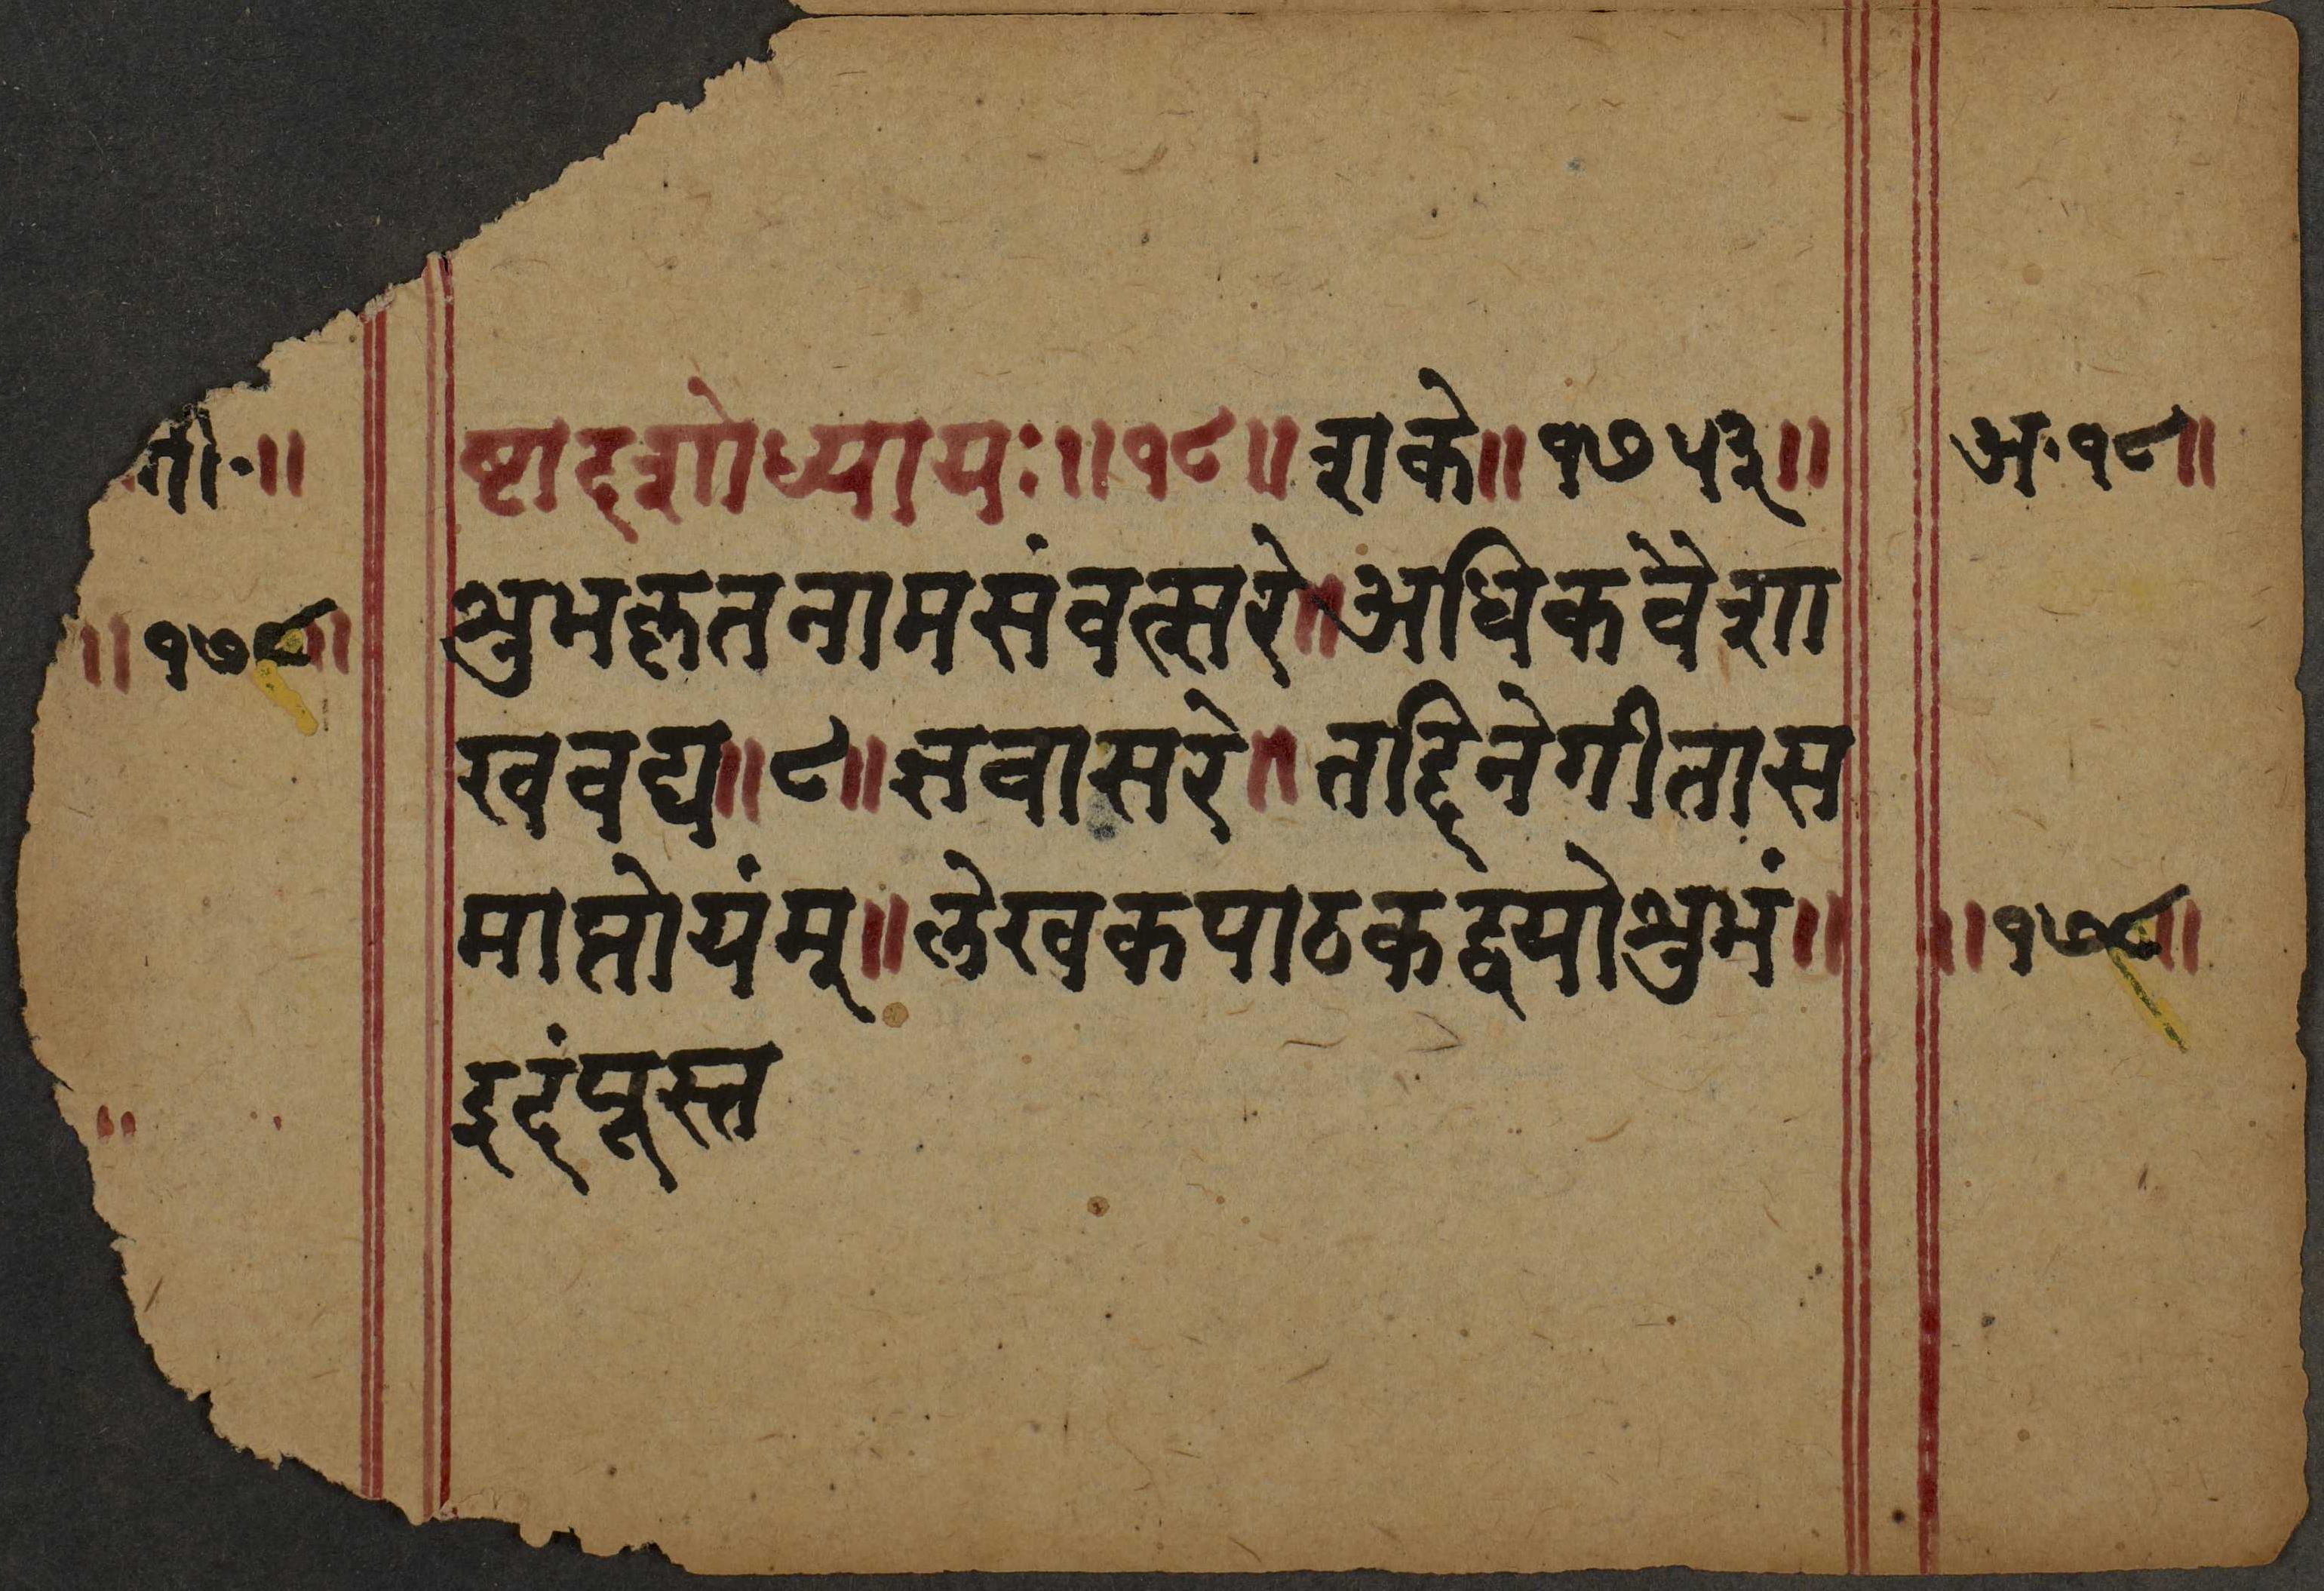 गी॰॥
॥१७८॥
ष्टादशोध्यायः॥१८॥ शके॥१७५३॥
शुभकृतनामसंवत्सरे॥अधिकवैशा
खवद्य॥८॥ज्ञवासरे॥तद्दिनेगीतास
माप्तोयंम्॥लेखकपाठकद्वयोशुभं॥
इदंपूस्त
अ॰१८॥
॥१७८॥